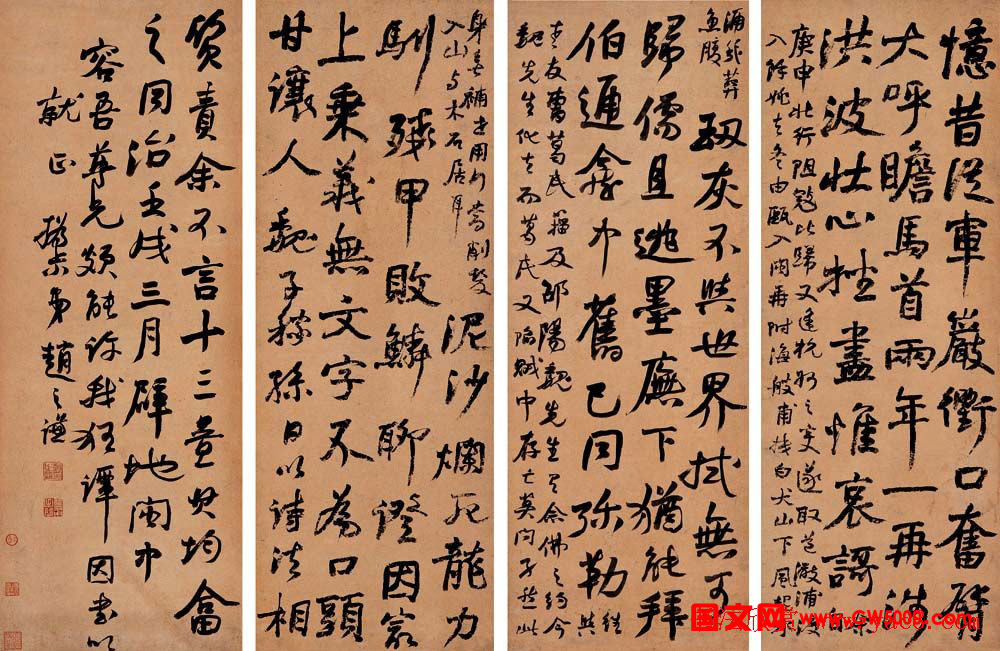 憶昔從軍嚴衢口奮臂
大呼瞻馬首兩年一再涉
洪波壯心摧盡惟哀謌
庚申北行阻寇以歸又逢杭州之變遂取道澉浦渡
入餘姚去冬由甌入閩再附海舶甫 白犬山下風起
魚腹 劫灰不與世界拭無可
歸儒且逃墨廡下猶能拜
伯通龕中舊已同弥勒
老友曹葛民籀及邵陽魏先生 余佛之約今
魏先生化去而葛民又陷賊中存亡莫問 此
身無補世用行當削髮
入山与木石居耳 泥沙爛死龍力
馴殘甲敗鱗聊證因衆
上乘義無文字不為口頭
甘讓人 魏子稼孫日以詩法相
質責余不言十三 均龕
之同治壬戌三月辟地閩中
容吾尊兄頗能許我狂譚因書以
就正 撝叔弟趙之謙
国文网
www.GW5008.com